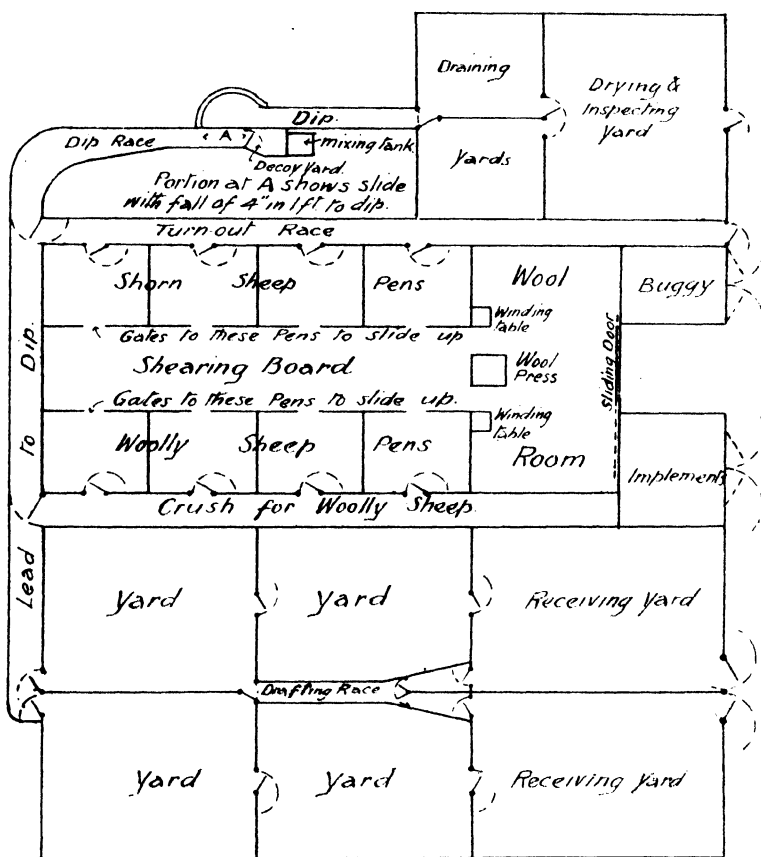 Draining
Yards
Drying &
Inspecting
Yard
Dip.
Dip Race
A
mixing tank
Decoy Yard.
Portion at A shows slide
with fall of 4" in 1 ft to dip.
Turn-out Race
Shorn Sheep Pens
Wool
Buggy
Winding
table
Gates to these Pens to slide up
Shearing Board
Wool
Press
Sliding Door
Gates to these Pens to slide up.
Winding
table
Woolly Sheep Pens
Room
Implements
Crush for Woolly Sheep.
Lead to Dip.
Yard
Yard
Receiving Yard
Drafting Race
Yard
Yard
Receiving Yard